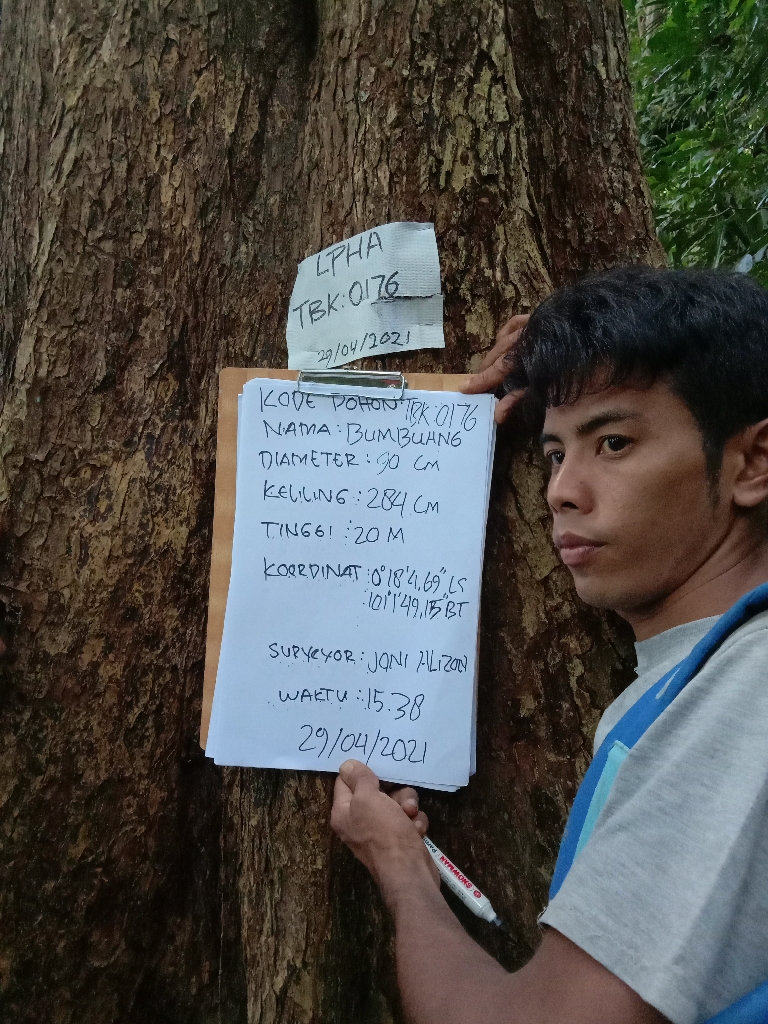 LPHA
TBK:0176
29/04/2021
KODE POHON:TBK:0176
NAMA:BUMBUNG
DIAMETER:90 CM
KELILING:284 CM
TINGGI:20 M
KOORDINAT:0°18'4,69"LS
:101°1'49,15"BT
SURVEYOR:JONI ALIZON
WAKTU:15.38
29/04/2021
SNOWMAN